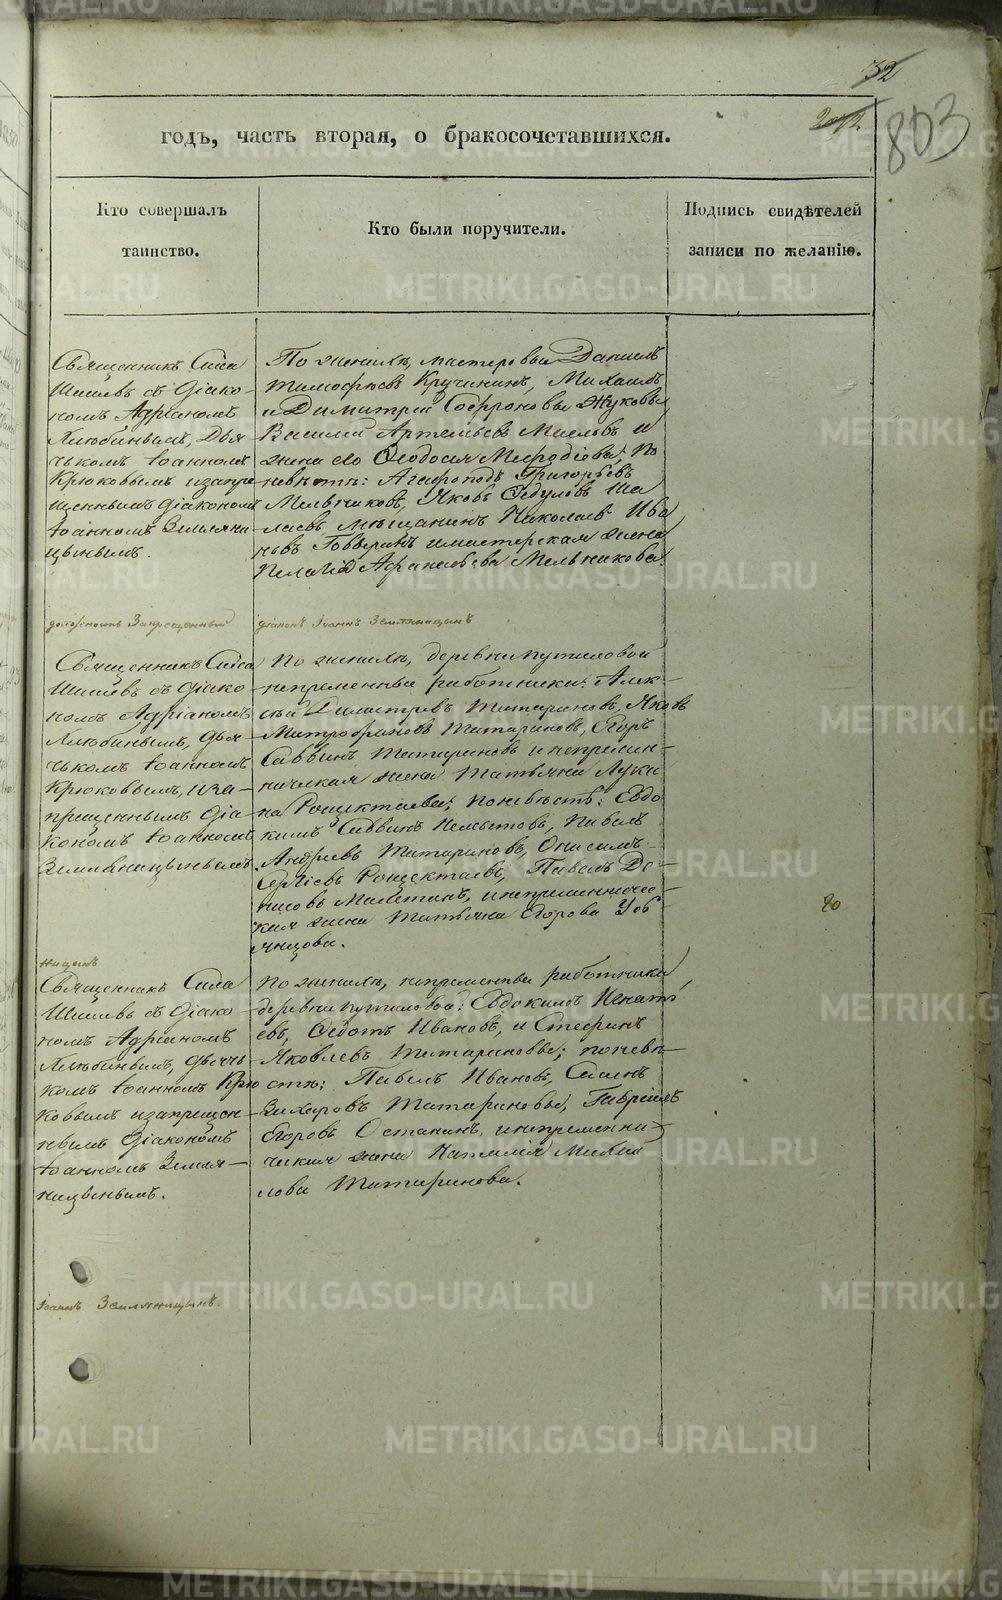 32
803
годъ, часть вторая, о бракосочетавшихся.
Кто совершалъ
таинство.
Кто были поручители.
Подпись свидѣтелей
записи по желанію.
Священникъ Сила
Шишевъ съ Діако-
номъ Адріаномъ
Хлюбинымъ, Дья
чькомъ Іоанномъ
Крюковымъ и запре
щеннымъ діакономъ
Іоанномъ Земляни-
цынымъ.
По женихѣ, мастеровыи Даніилъ
Тимофѣевъ Кручининъ, Михаилъ
и Димитрій Софроновы Жуковы
Василій Артемьевъ и
жена его Ѳеодосія Меѳодіова; По
невѣстѣ: Агафоподъ Григорьевъ
Мельчиковъ, Яковъ Ѳедуловъ Ша
лаевъ мѣщанинъ Николай Ива
новъ и мастерская жена
Пелагія Афанасьева Мельникова.
должность Запрещенный
діаконъ Іоаннъ Земляницынъ
Священникъ Сила
Шишевъ съ Діако-
номъ Адріаномъ
Хлюбинымъ, дья-
чькомъ Іоанномъ
Крюковымъ, и за-
прещеннымъ діа-
кономъ Іоанномъ
Земляницынымъ.
По женихѣ, деревни Путиловой
непременныи работники: Алек-
сѣй Димитріевъ Татариновъ, Яковъ
Митрофановъ Татариновъ, Егоръ
Саввинъ Татариновъ и непремен-
ническая жена Татьяна Луки
на Рощектаева; по невѣстѣ: Евдо
кимъ Саввинъ Немытовъ, Павелъ
Андреевъ Татариновъ, Онисимъ
Сергіевъ Рощектаевъ, Павелъ Де-
нисовъ и непременниче-
ская жена Татьяна Егорова
янцова.
80
ницынъ
Священникъ Сила
Шишевъ съ Діако
номъ Адріаномъ
Хлюбинымъ, дьячь
комъ Іоанномъ Крю
ковымъ и запрещен
нымъ Діакономъ
Іоанномъ Земля-
ницынымъ.
По женихѣ, непременныи работники
деревни Путиловой: Евдокимъ Игнать
евъ, Ѳедотъ Ивановъ, и Стефанъ
Яковлевъ Татариновы; по невѣ-
стѣ: Павелъ Ивановъ, Семенъ
Захаровъ Татариновы, Гавріилъ
Егоровъ Останинъ, и непременни-
ческая жена Наталія Михаи
лова Татаринова.
Іоаннъ Земляницынъ.
METRIKI.GASO-URAL.RU